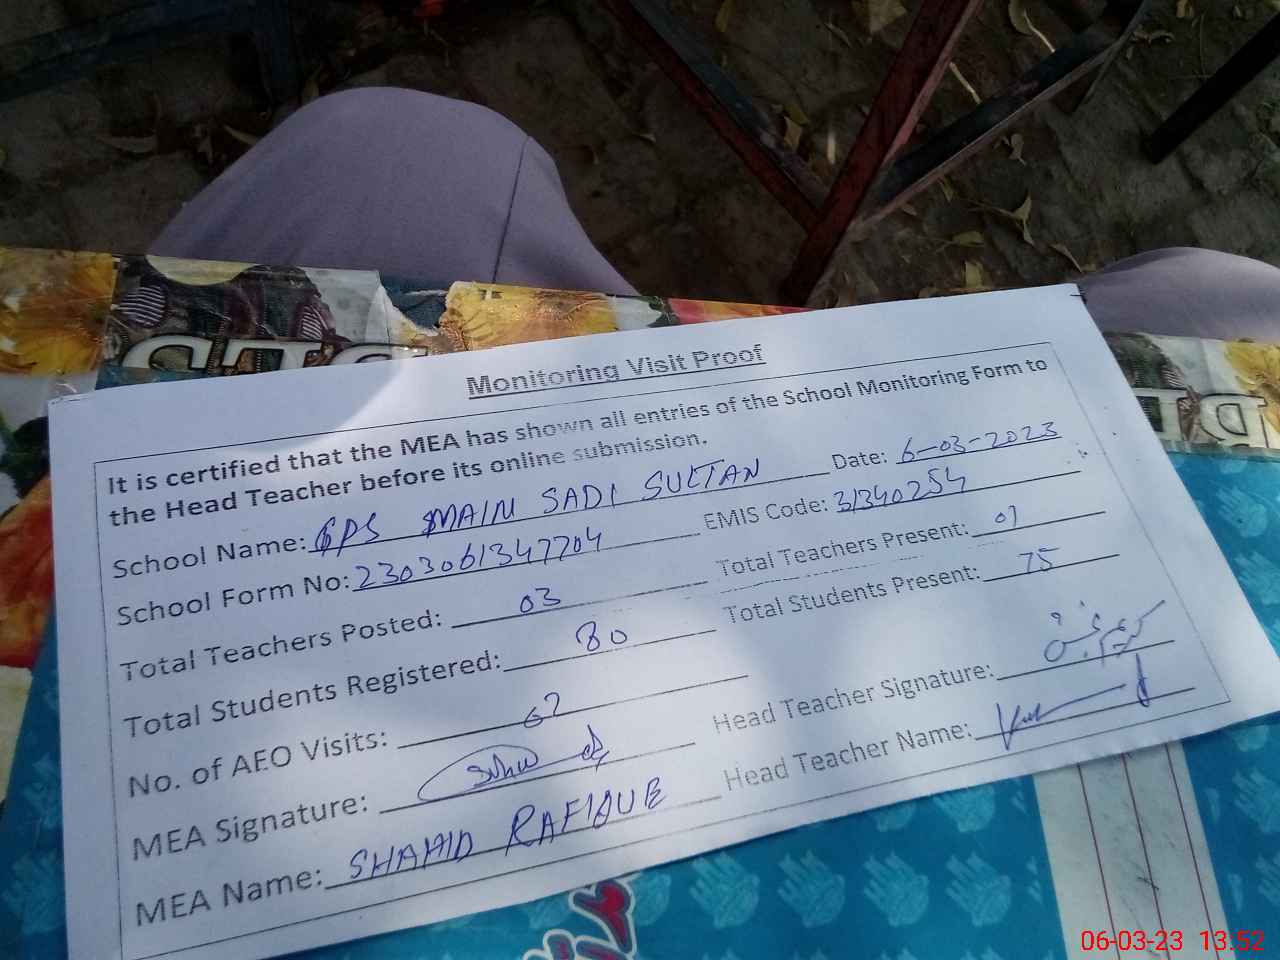 Monitoring Visit Proof
It is certified that the MEA has shown all entries of the School Monitoring Form to
the Head Teacher before its online submission.
School Name: GPS MAIN SADI SULTAN Date: 6-03-2023
School Form No: 2303061347704 EMIS Code: 31340254
Total Teachers Posted: 03 Total Teachers Present:
Total Students Registered: 80 Total Students Present: 75
No. of AEO Visits:
MEA Signature: Head Teacher Signature:
MEA Name: SHAHID RAFIQUE Head Teacher Name:
06-03-23 13:52